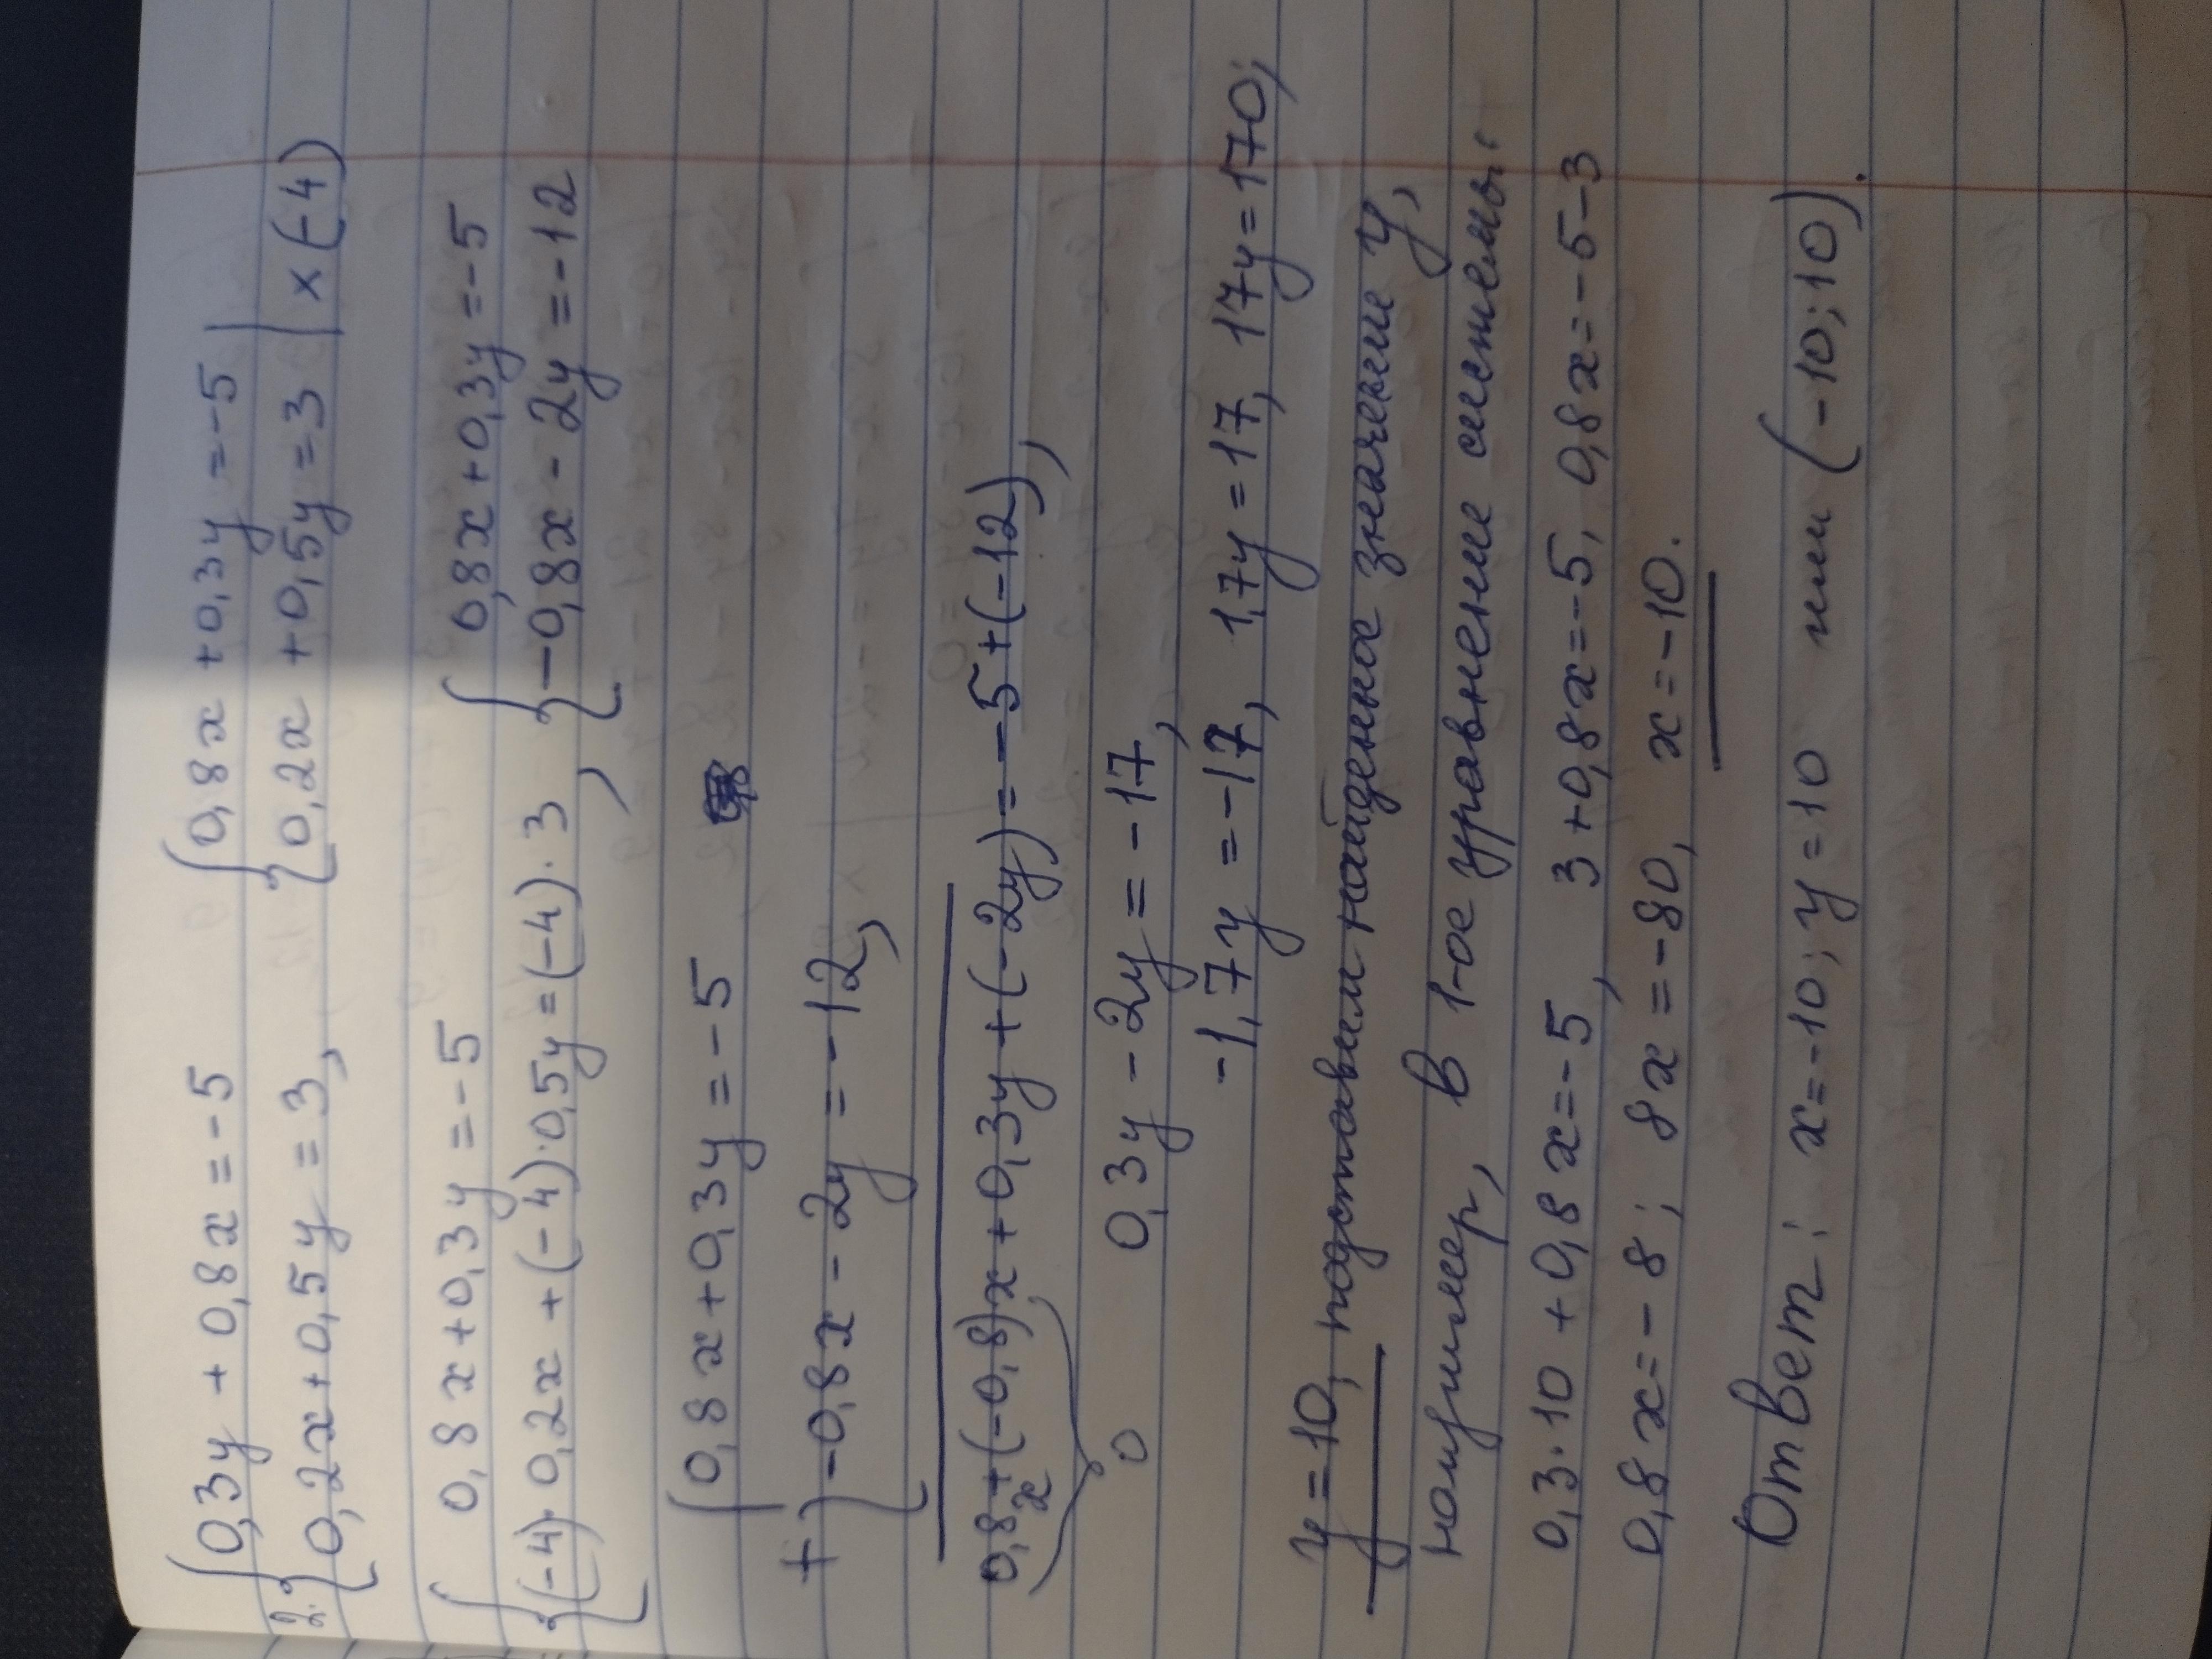 2. {0,3y + 0,8x = -5 {0,8x + 0,3y = -5 |
{0,2x + 0,5y = 3, {0,2x + 0,5y = 3 | x (-4)
{0,8x + 0,3y = -5 {0,8x + 0,3y = -5
{(-4)·0,2x + (-4)·0,5y = (-4)·3, {-0,8x - 2y = -12
{0,8x + 0,3y = -5
+ {-0,8x - 2y = -12,
0,8x + (-0,8)x + 0,3y + (-2y) = -5 + (-12),
0 0,3y - 2y = -17,
-1,7y = -17, 1,7y = 17, 17y = 170;
y = 10, подставим найденное значение y,
например, в 1-ое уравнение системы:
0,3·10 + 0,8x = -5, 3 + 0,8x = -5, 0,8x = -5-3
0,8x = -8; 8x = -80, x = -10.
Ответ: x = -10; y = 10 или (-10; 10).